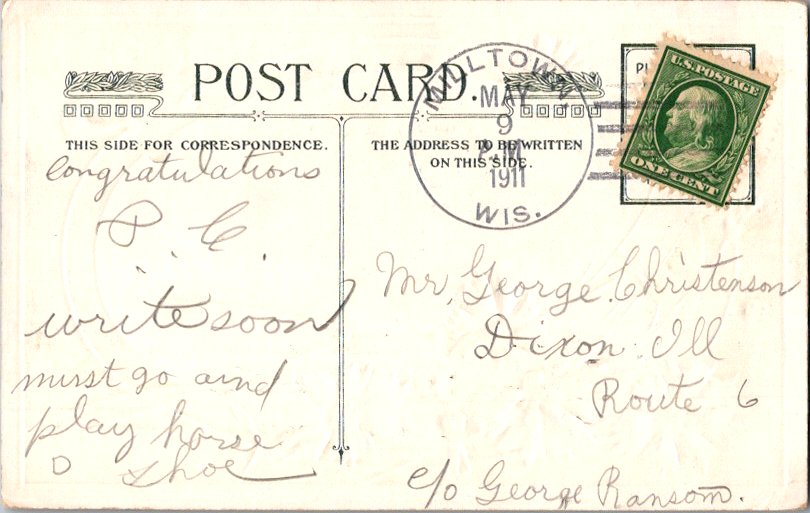 POST CARD.
THIS SIDE FOR CORRESPONDENCE.
THE ADDRESS TO BE WRITTEN
ON THIS SIDE.
MILLTOWN,
MAY
9
P.M.
1911
WIS.
U.S. POSTAGE
ONE CENT
congratulations
P. C.
write soon
must go and
play horse
shoe
Mr. George Christenson
Dixon Ill
Route 6
c/o George Ransom.